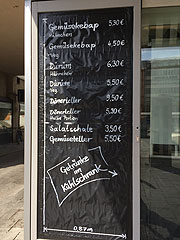 Gemüsekebap 5,50€
Hähnchen
Gemüsekebap 4,50€
Veg
Dürüm 6,30€
Hähnchen
Dürüm 5,50€
Veg
Dönerteller 9,50€
Dönerteller 5,30€
Halbe Portion
Salatschale 3,50€
Gemüseteller 5,50€
Getränke
am
Kühlschrank
0,87m